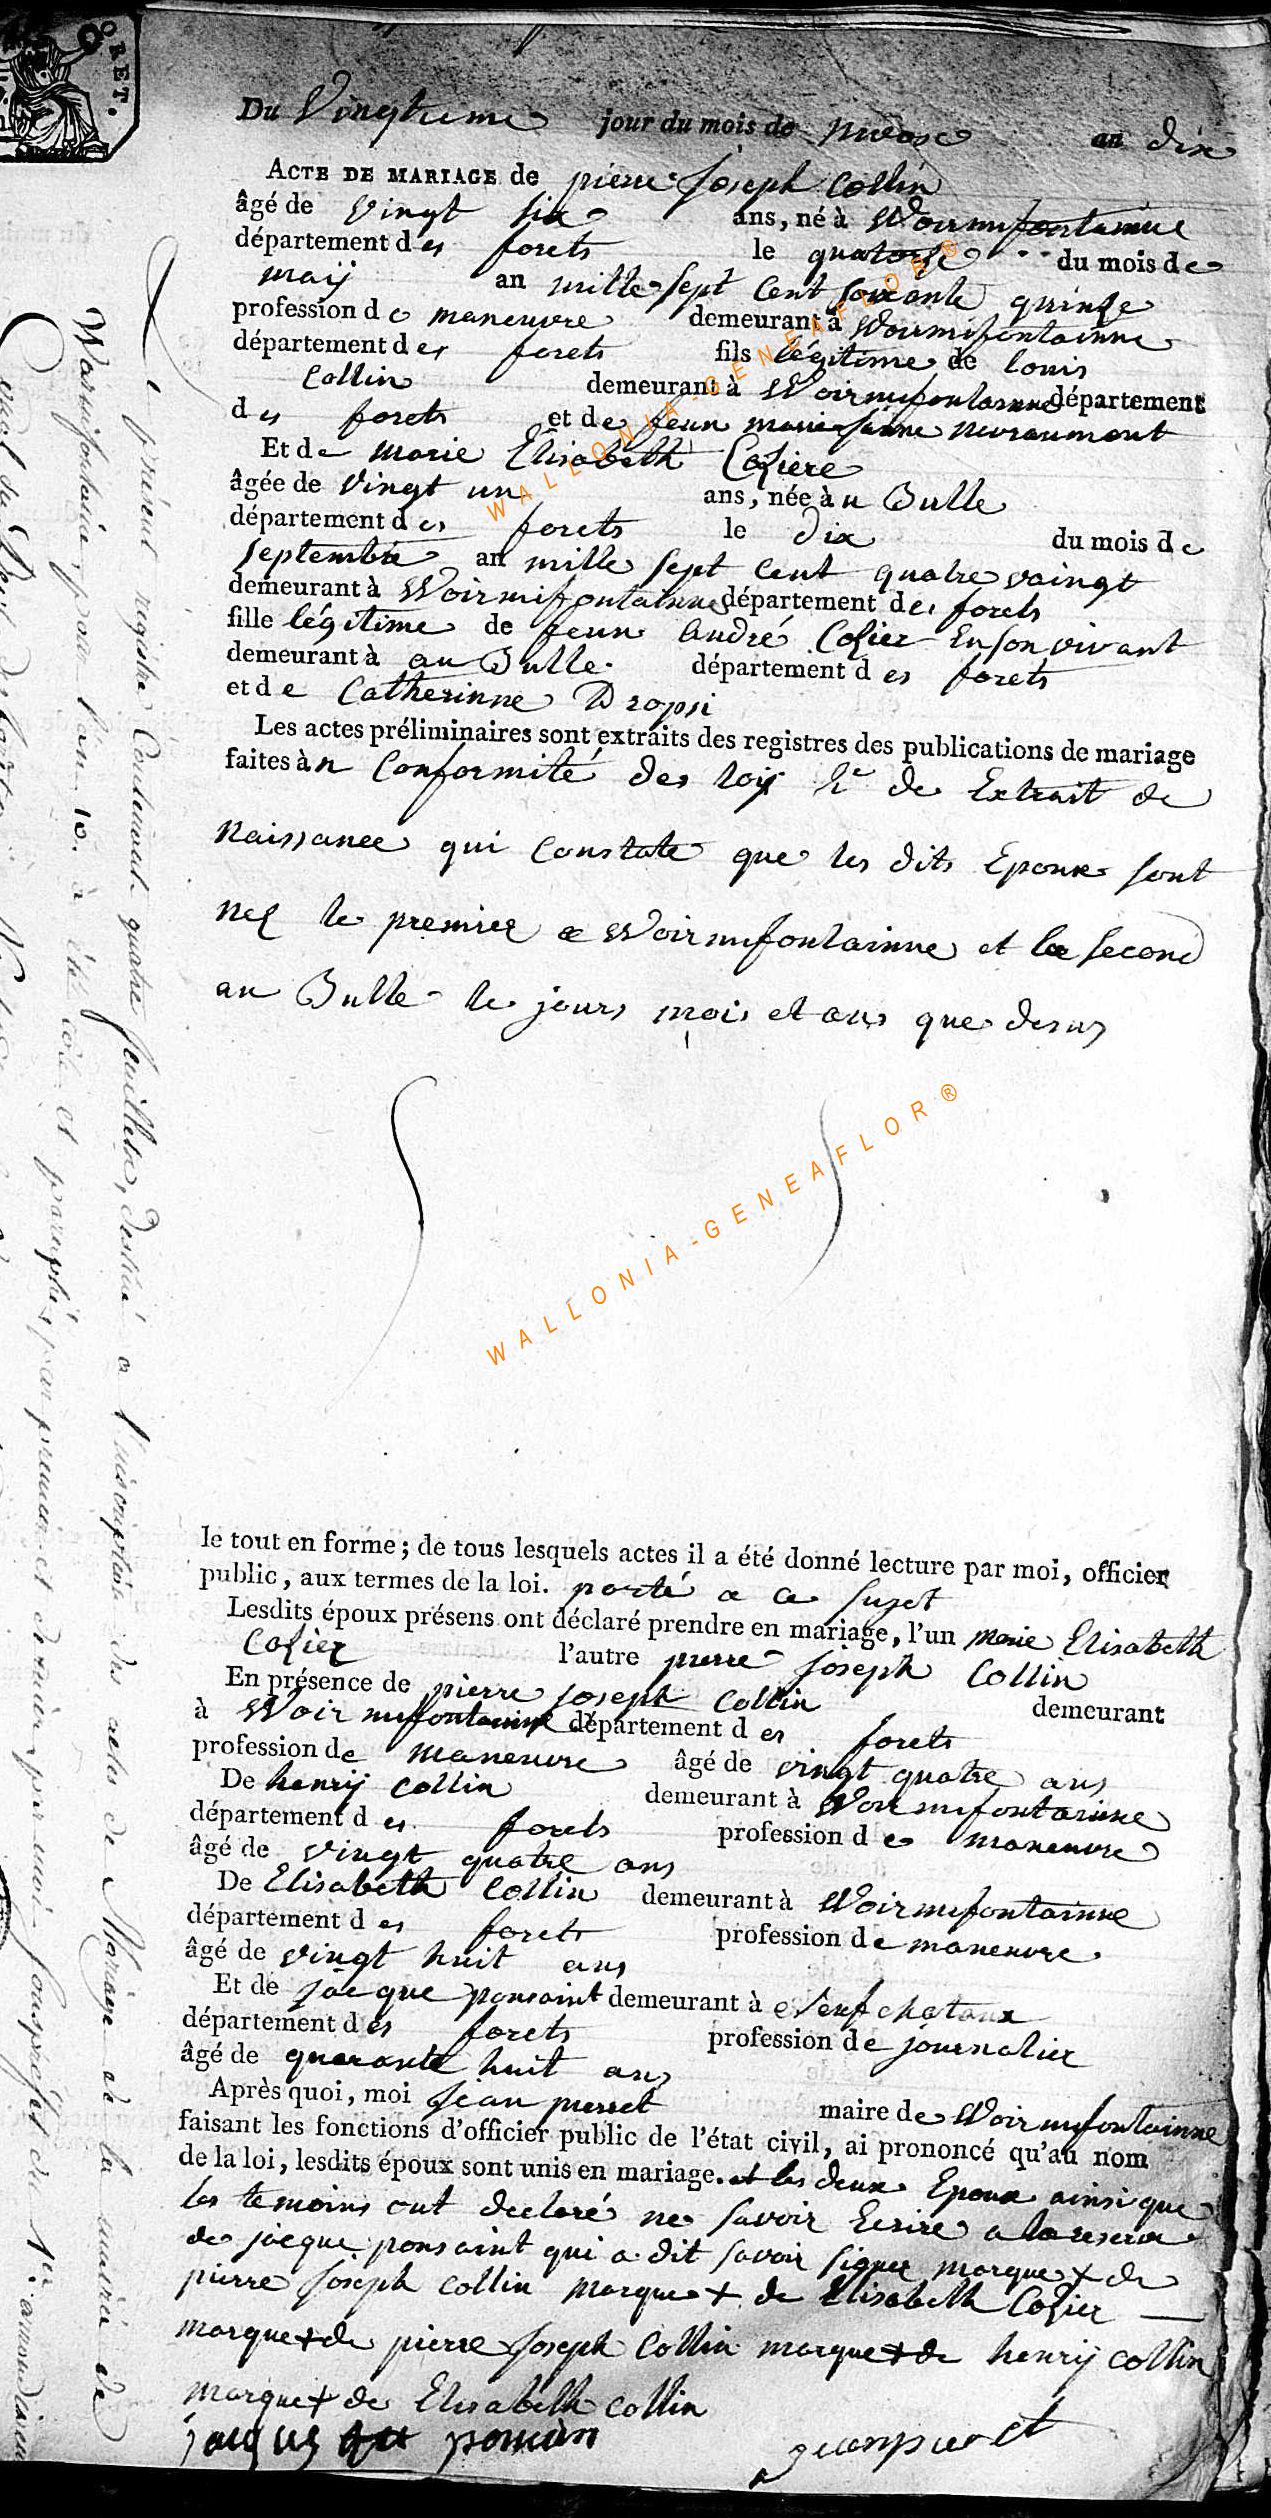 CRET.
Du Vingtieme jour du mois de nivose an dix
ACTE DE MARIAGE de pierre Joseph Collin
âgé de vingt six ans, né à Woirmifontainne
département des forets le quatorse du mois de
maij an mille sept Cent soixante quinse
profession de maneuvre demeurant à Woirmifontainne
département des forets fils légitime de louis
Collin demeurant à Woirmifontainne département
des forets et de feun marie jeanne nevraumont
Et de marie Elisabeth Cosiere
âgée de vingt un ans, née àu Bulle
département des forets le dix du mois de
septembre an mille sept cent quatre vaingt
demeurant à Woirmifontainne département des forets
fille légitime de feun André Cosier En son vivant
demeurant à au Bulle département des forets
et de Catherinne Dropsi
Les actes préliminaires sont extraits des registres des publications de mariage
faites àn Conformité des loij et de Extrait de
naissance qui Constate que les dits Epoux sont
nes le premier a Woirmifontainne et le second
au Bulle le jours mois et ans que desus
le tout en forme; de tous lesquels actes il a été donné lecture par moi, officier
public, aux termes de la loi. porté a ce sujet
Lesdits époux présens ont déclaré prendre en mariage, l'un marie Elisabeth
Cosier l'autre pierre Joseph Collin
En présence de pierre Joseph Collin demeurant
à Woirmifontainne département des forets
profession de maneuvre âgé de vingt quatre ans
De henrij Collin demeurant à Woirmifontainne
département des forets profession de maneuvre
âgé de vingt quatre ans
De Elisabeth Collin demeurant à Woirmifontainne
département des forets profession de maneuvre
âgé de vingt huit ans
Et de Jacque ponsaint demeurant à Neufchataux
département des forets profession de journalier
âgé de quarante huit ans
Après quoi, moi Jean pierret maire de Woirmifontainne
faisant les fonctions d'officier public de l'état civil, ai prononcé qu'au nom
de la loi, lesdits époux sont unis en mariage. et les deux Epoux ainsi que
les temoins ont declaré ne savoir Ecrire a la reserve
de jacque ponsaint qui a dit savoir signer marque + de
pierre Joseph Collin marque + de Elisabeth Cosier
marque + de pierre Joseph Collin marque + de henrij Collin
marque + de Elisabeth Collin
jeanpierret
Le présent registre Contenant quatre feuillets, destiné à l'inscription des actes de Mariage de la mairie de
Warmifontaine, pour l'an 10. à été coté et paraphé, par premier et dernier par moi Souspréfet du 1er arrondissem
WALLONIA-GENEAFLOR®
WALLONIA-GENEAFLOR®